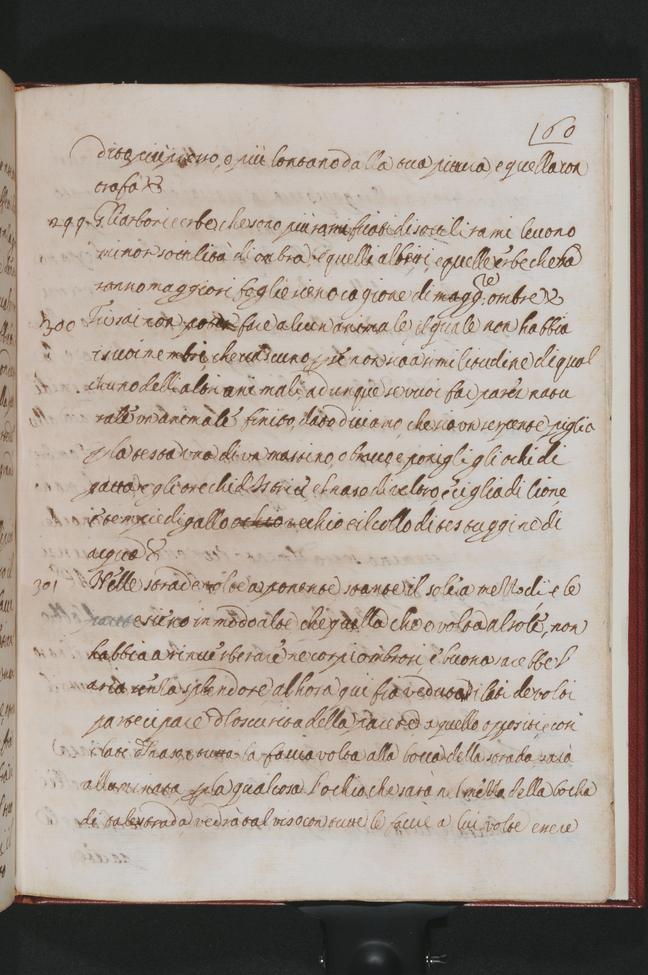 160
dita più presso, o più lontano da la tua pittura, e quella con
trafa &
299 Gli arbori e erbe che sono più ramificati di sottili rami devono
minor oscurità di ombra e quelli alberi, e quelle erbe che ha
ranno maggiori foglie sieno cagione di magg.re ombre &
300 Tu sai non poter fare alcun animale, il quale non habbia
i suoi membri, che ciascuno p se non sia a similitudine di qual
chuno delli altri animali, adunque se vuoi far parer natu
rale un animale finito, dato diciamo, che sia un serpente piglia
p la testa una di un mastino, o bracco e ponigli gli ochi di
gatta, e gli orechi d'Istrice et naso di veltro e ciglia di lione
e tempie di gallo vechio e il collo di testuggine di
acqua &
301 Nelle strade volte a ponente stante il sole a mezzo dì e le
parte sieno in modo alte che quella che è volta al sole, non
habbia a rinuerberare ne corpi ombrosi e buona sarebbe l
aria senza splendore, alhora qui fia veduta di lati de volti
partecipare d'loscurità della pariete a quello opposite, e cosi
i lati d'l naso e tutta la faccia volta alla bocca della strada sarà
alluminata p la qual cosa l'ochio che sarà nel mezzo della bocha
di tal strada vedrà tal viso con tutte le faccie a lui volte essere